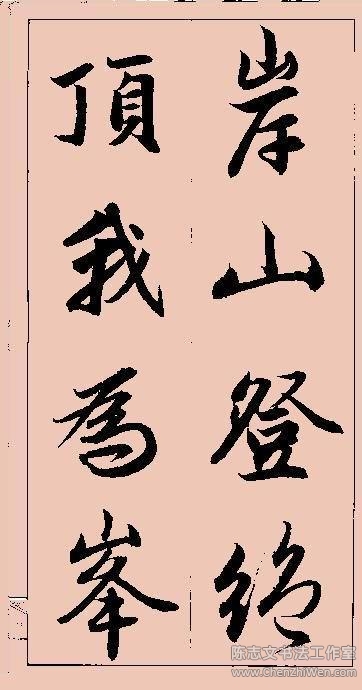 岸山登绝
頂我為峯
陈志文书法工作室
www.chenzhiwen.com